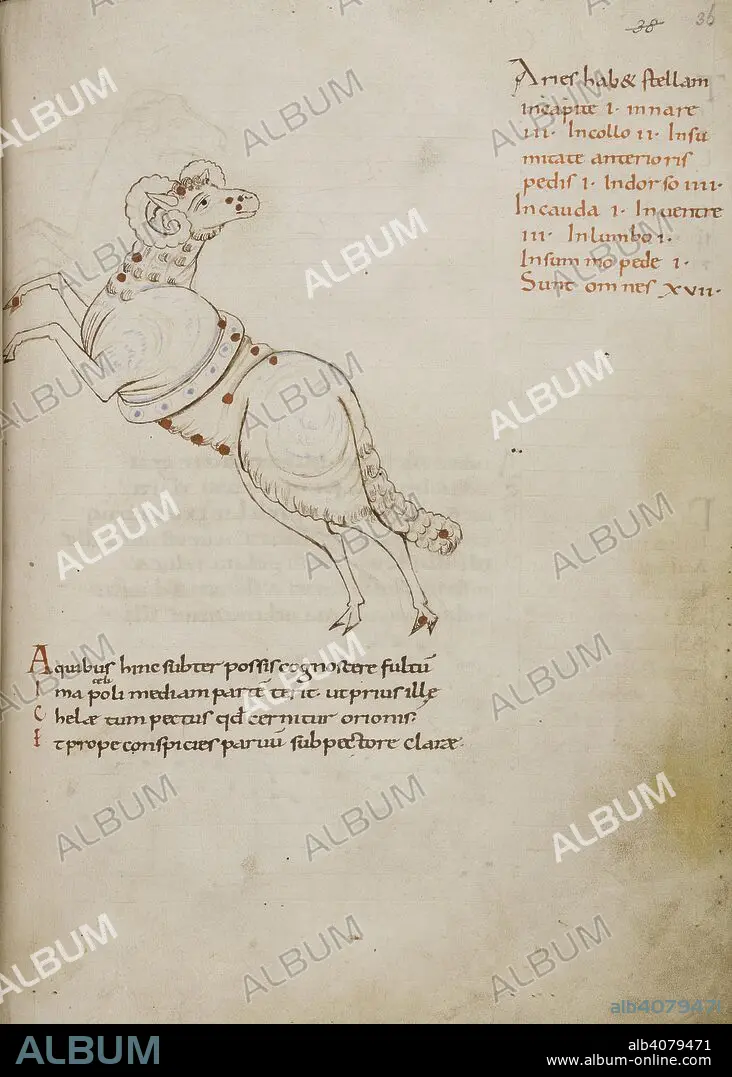 38 36
Aries hab& stellam
incapite i· innare
iii· Incollo ii· Insu
mitate anterioris
pedis i· Indorso iiii·
Incauda i· Inuentre
iii· Inlumbo i·
Insummo pede i·
Sunt omnes xvii·
Aquibus hinc subter possis cognoscere fultū
I ma poli mediam partē terit· ut prius illę
C helae tum pectus qd cernitur orionis·
E t prope conspicies paruū sub pectore clarae·
ALBUM
alb4079471
ALBUM
alb4079471
www.album-online.com